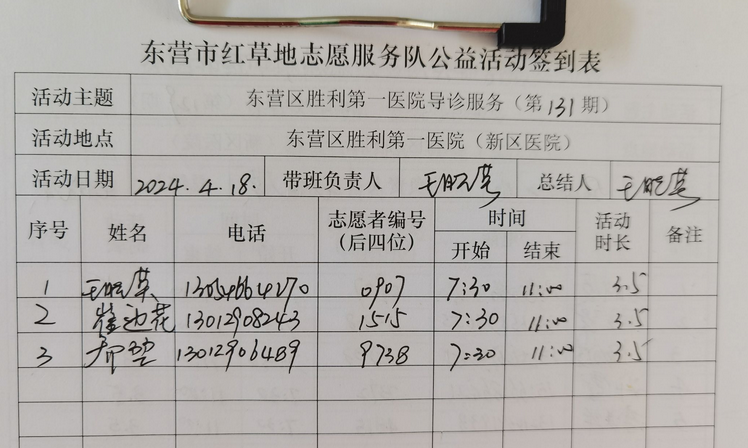 东营市红草地志愿服务队公益活动签到表
活动主题 东营区胜利第一医院导诊服务（第131期）
活动地点 东营区胜利第一医院（新区医院）
活动日期 2024.4.18. 带班负责人 王晓英 总结人 王晓英
序号 姓名 电话 志愿者编号（后四位） 时间 开始 结束 活动时长 备注
1 王晓英 13054664270 0907 7:30 11:00 3.5
2 崔边花 13012908243 1515 7:30 11:00 3.5
3 13012906489 9738 7:30 11:00 3.5